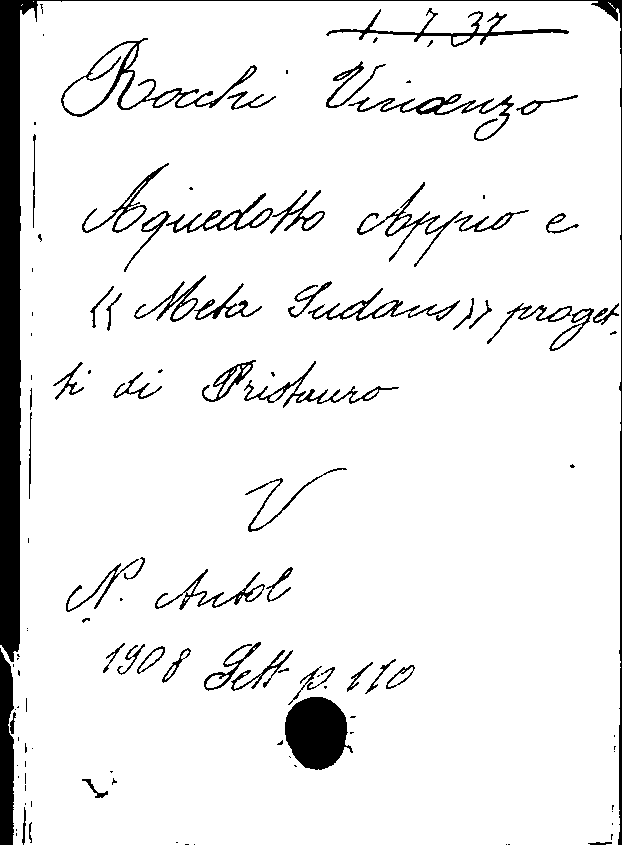 1. 7. 37
Rocchi Vincenzo
Aquedotto Appio e
« Meta Sudans » proget-
ti di Pristauro
V
N. Antol
1908 Sett p. 110